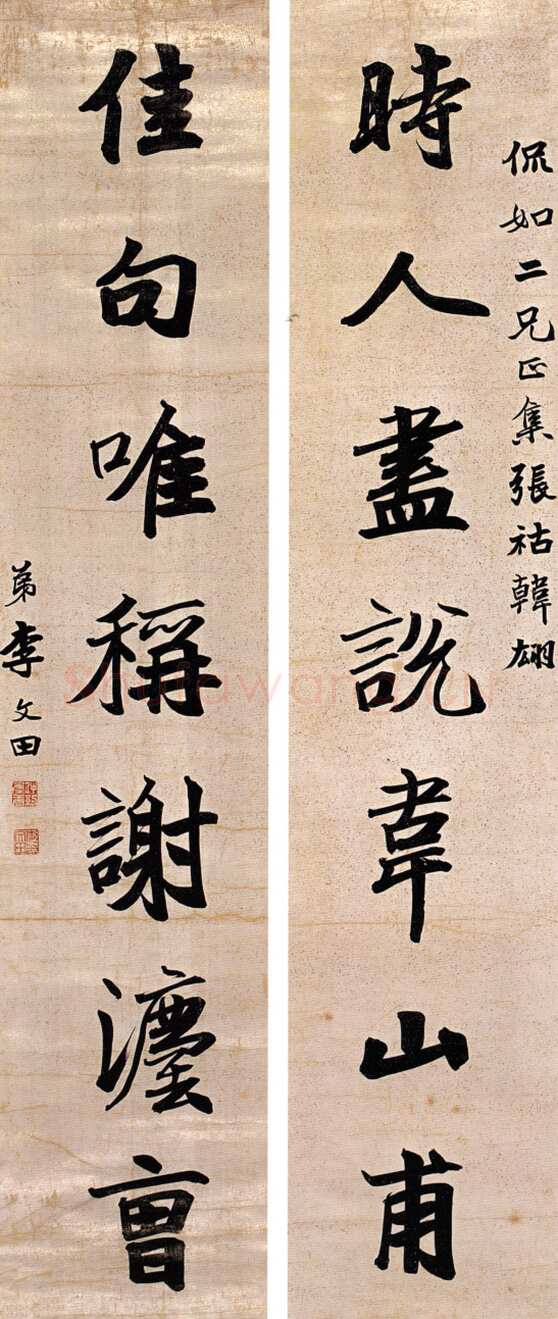 侃如二兄正集張祜韓翃
時人盡說韋山甫
佳句唯稱謝灋曹
弟李文田
Shufawang.cn